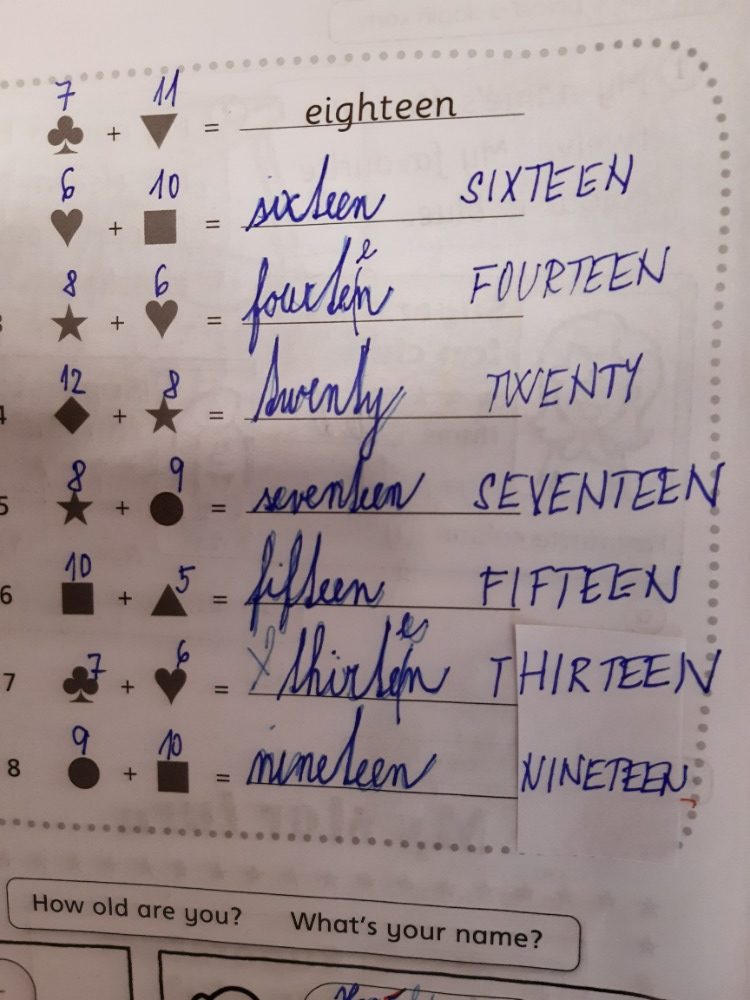 7 11
+ = eighteen
6 10
+ = sixteen SIXTEEN
8 6
+ = fourteen FOURTEEN
12 8
4 + = twenty TWENTY
8 9
5 + = seventeen SEVENTEEN
10 5
6 + = fifteen FIFTEEN
7 6
7 + = thirteen THIRTEEN
9 10
8 + = nineteen NINETEEN
How old are you? What's your name?